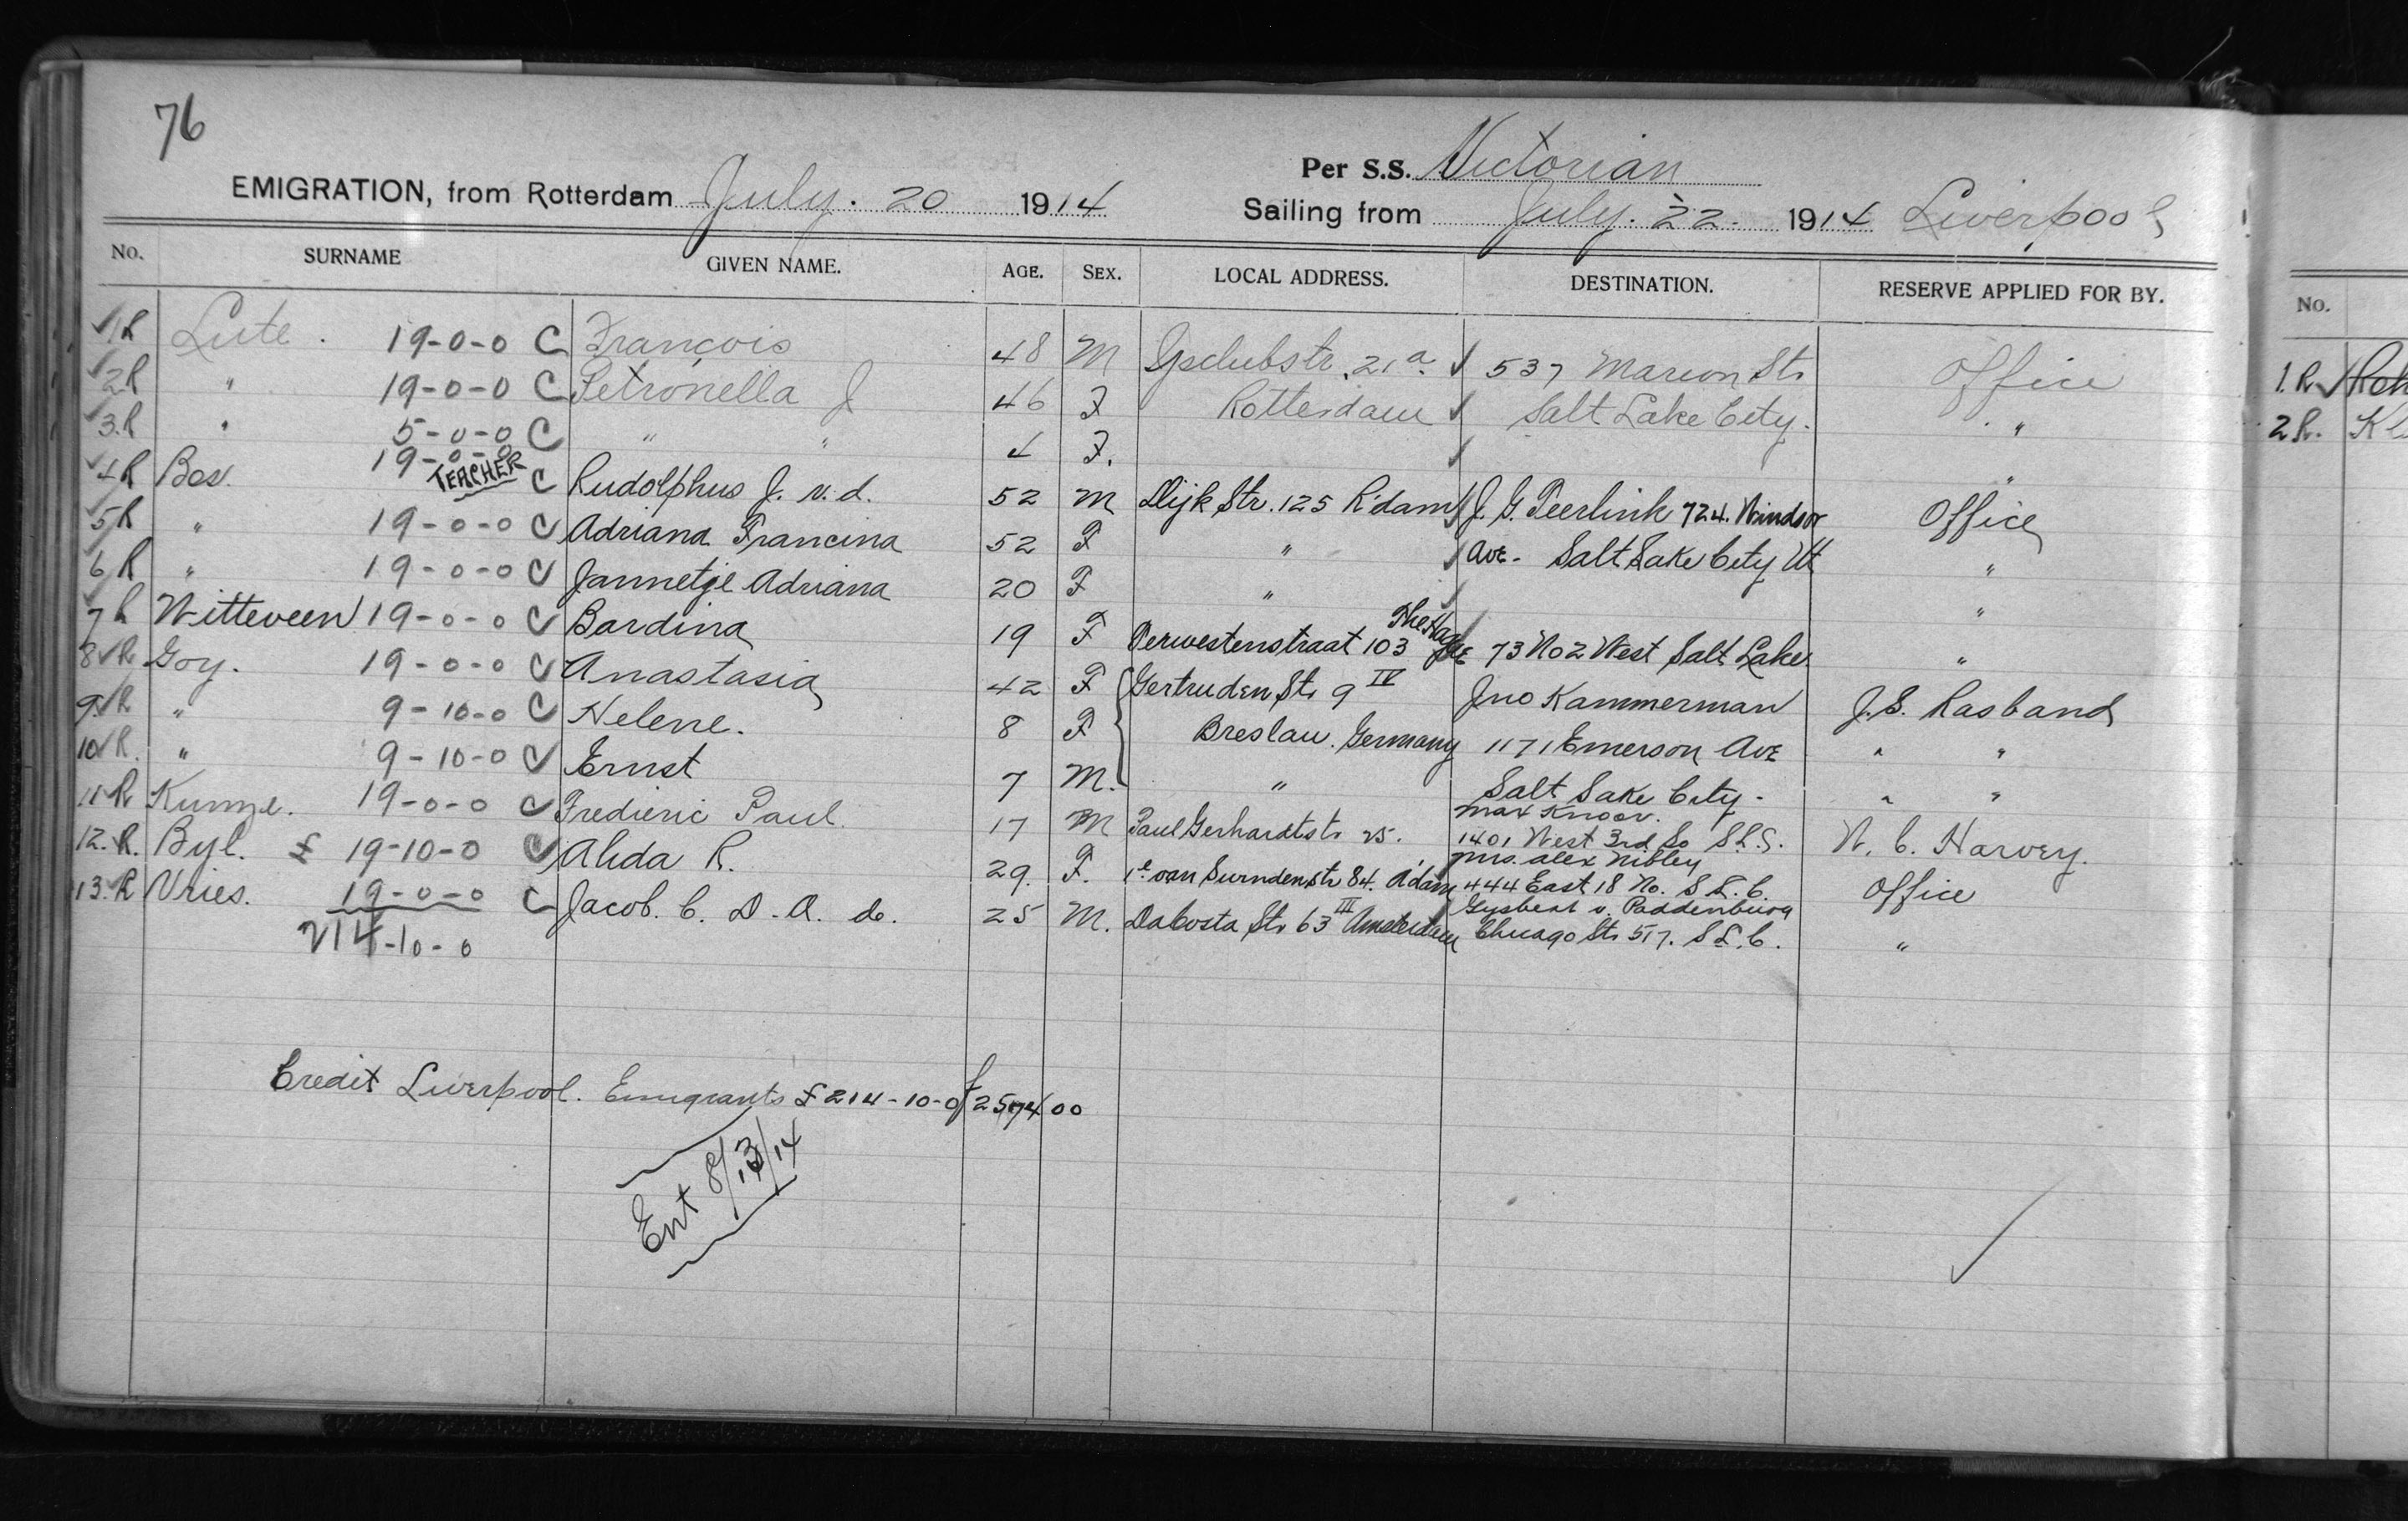 76
EMIGRATION, from Rotterdam July. 20 1914 Per S.S. Victorian
Sailing from July. 22. 1914 Liverpool
No. SURNAME GIVEN NAME. AGE. SEX. LOCAL ADDRESS. DESTINATION. RESERVE APPLIED FOR BY.
1R Lute. 19-0-0 C François 48 M Ijsclubstr. 21a. 537 Marion St. Office
2R " 19-0-0 C Petronella J 46 F Rotterdam Salt Lake City. "
3.R " 5-0-0 C " " 4 F. "
4R Bos. 19-0-0 TEACHER C Rudolphus J. v.d. 52 M Dijk Str. 125 R'dam J. G. Peerlink 724. Windsor Office
5R " 19-0-0 C Adriana Francina 52 F " Ave- Salt Lake City Ut "
6R " 19-0-0 C Jannetje Adriana 20 F " "
7R Witteveen 19-0-0 C Bardina 19 F Verwestenstraat 103 The Hague 73 No 2 West Salt Lake "
8R Goy. 19-0-0 C Anastasia 42 F Gertruden Str 9 IV Jno Kammerman J. S. Rasband
9.R " 9-10-0 C Helene. 8 F Breslau. Germany 1171 Emerson Ave " "
10R. " 9-10-0 C Ernst 7 M. " Salt Lake City- " "
11R Kunze. 19-0-0 C Frederic Paul. 17 M Paul Gerhardtstr 25. Max Knoor. 1401 West 3rd So S.L.C. W. C. Harvey.
12.R. Byl. £ 19-10-0 C Alida R. 29. F. 1e van Surndenstr 84. A'dam Mrs. Alex Nibley 444 East 18 No. S.L.C. Office
13.R Vries. 19-0-0 C Jacob. C. D. A. de. 25 M. DaCosta Str 63 III Amsterdam Gysbert v. Paddenburg Chicago Str 517. S.L.C. "
214-10-0
Credit Liverpool. Emigrants £ 214-10-0 f 2574 00
Ent 8/13/14
No.
1.R
2R.